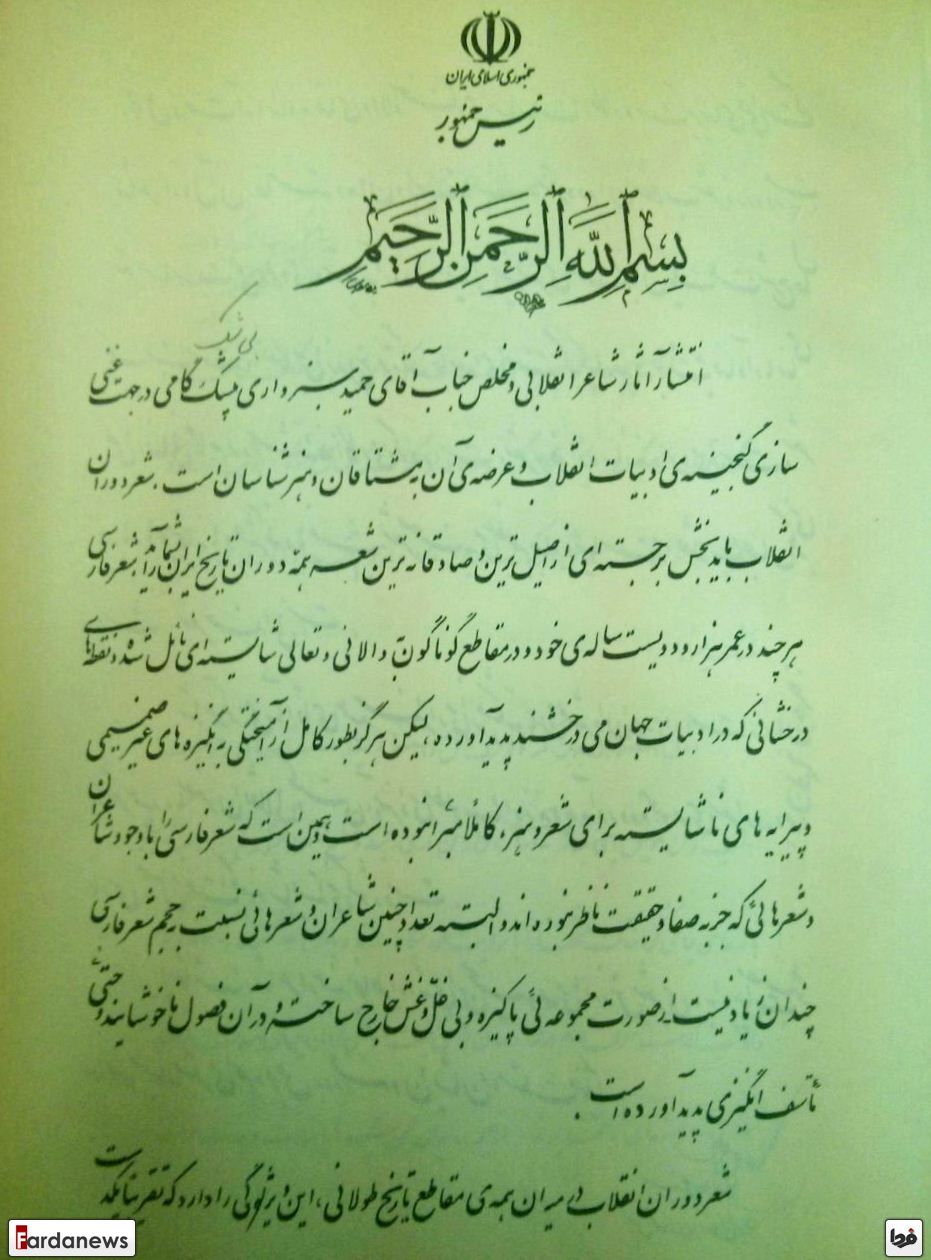 جمهوری اسلامی ایران
رئیس جمهور
بسم الله الرحمن الرحیم
بی شک
انتشار آثار شاعر انقلابی و مخلص جناب آقای حمید سبزواری بیشک گامی در جهت غنی
سازی گنجینه‌ی ادبیات انقلاب و عرضه‌ی آن به مشتاقان و هنرشناسان است. شعر دوران
انقلاب باید بخش برجسته‌ای از اصیل ترین و صادقانه ترین شعر همه دوران تاریخ ایران بشمار آید. شعر فارسی
هر چند در عمر هزار و دویست ساله‌ی خود و در مقاطع گوناگون به والائی و تعالی شایسته‌ای نائل شده و نقطه‌های
درخشانی که در ادبیات جهان می درخشند پدید آورده، لیکن هرگز بطور کامل از آمیختگی به انگیزه های غیر صمیمی
و پیرایه های ناشایسته برای شعر و هنر، کاملاً مبرا نبوده است و همین است که شعر فارسی را با وجود شاعران
و شعرهائی که جز به صفا و حقیقت ناظر نبوده اند و البته تعداد چنین شاعران و شعرهائی نسبت به حجم شعر فارسی
چندان زیاد نیست از صورت مجموعه ئی پاکیزه و بی غلّ و غش خارج ساخته و در آن فصول ناخوشایند و حتّی
تأسف انگیزی پدید آورده است.
شعر دوران انقلاب در میان همه‌ی مقاطع تاریخ طولانی، این ویژگی را دارد که تقریباً یکدست
Fardanews
فردا